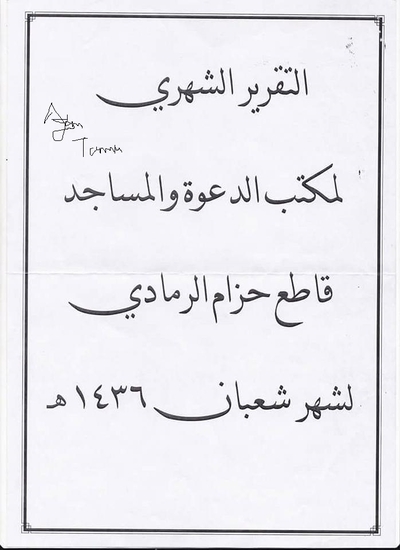 التقرير الشهري
لمكتب الدعوة والمساجد
قاطع حزام الرمادي
لشهر شعبان ١٤٣٦ هـ